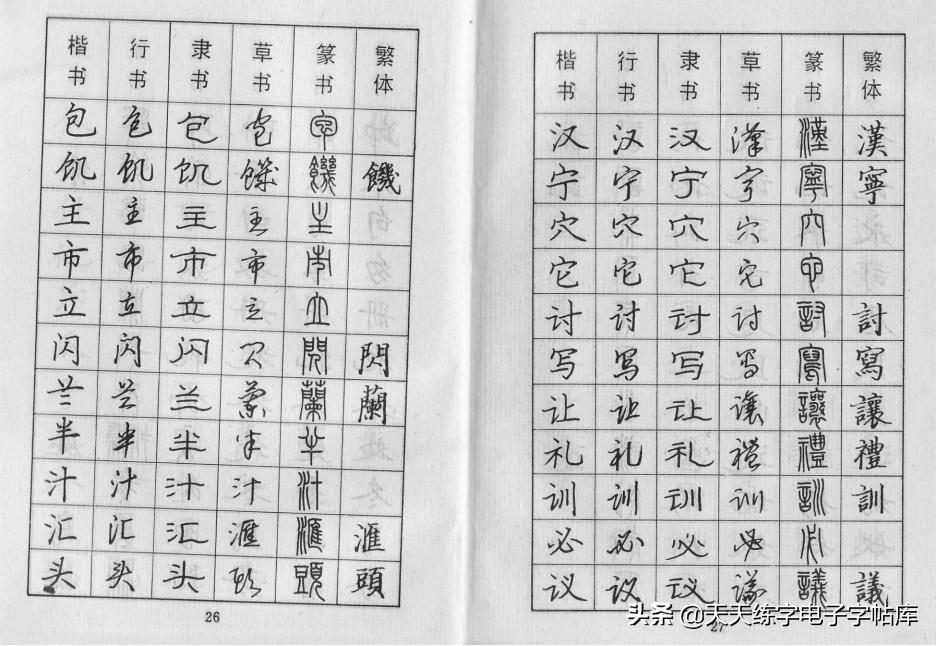 楷书 行书 隶书 草书 篆书 繁体
包 包 包 包 包
饥 饥 饥 饑 饑 饑
主 主 主 主 主
市 市 市 市 市
立 立 立 立 立
闪 闪 闪 闪 閃 閃
兰 兰 兰 蘭 蘭 蘭
半 半 半 半 半
汁 汁 汁 汁 汁
汇 汇 汇 滙 滙 滙
头 头 头 头 頭 頭
26
楷书 行书 隶书 草书 篆书 繁体
汉 汉 汉 漢 漢 漢
宁 宁 宁 宁 寧 寧
穴 穴 穴 穴 穴
它 它 它 它 它
讨 讨 讨 讨 討 討
写 写 写 写 寫 寫
让 让 让 讓 讓 讓
礼 礼 礼 禮 禮 禮
训 训 训 训 訓 訓
必 必 必 必 必
议 议 议 議 議 議
27
头条 @天天练字电子字帖库